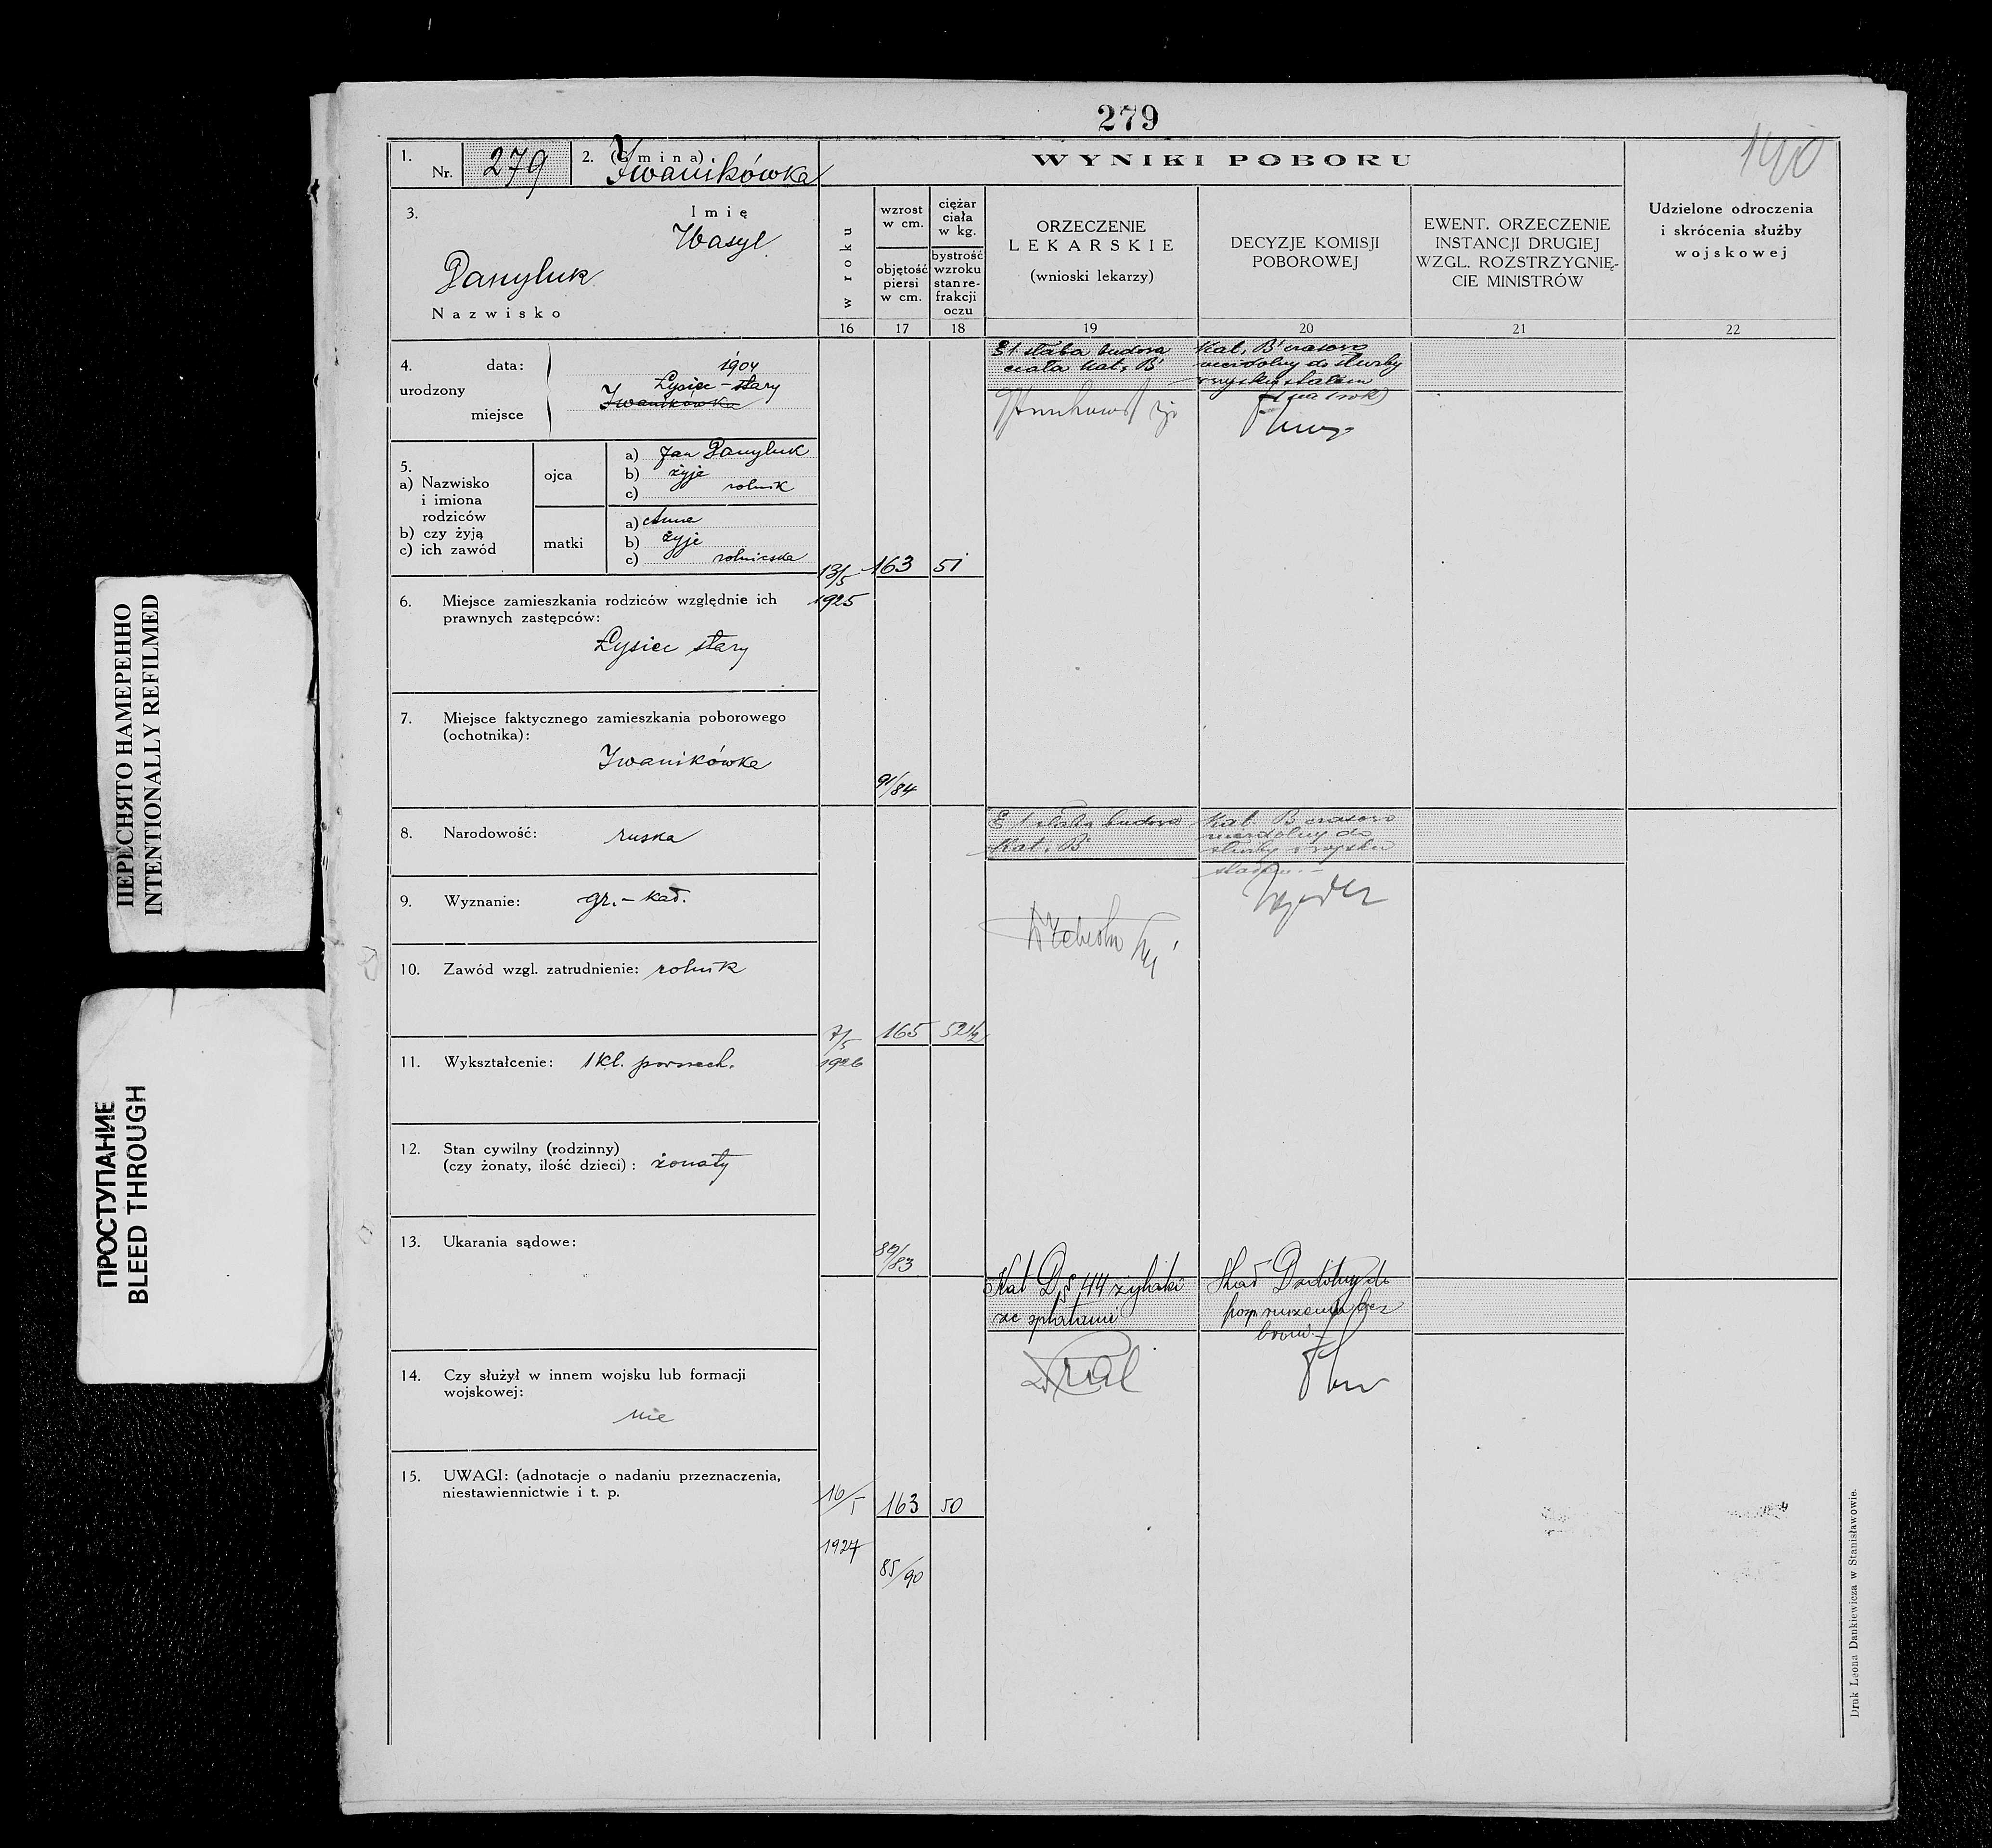 279
140
1.
Nr. 279
2. (Gmina)
Iwanikówka
WYNIKI POBORU
3.
Imię
Wasyl
Danyluk
Nazwisko
w roku
wzrost
w cm.
objętość
piersi
w cm.
ciężar
ciała
w kg.
bystrość
wzroku
stan re-
frakcji
oczu
ORZECZENIE
LEKARSKIE
(wnioski lekarzy)
DECYZJE KOMISJI
POBOROWEJ
EWENT. ORZECZENIE
INSTANCJI DRUGIEJ
WZGL. ROZSTRZYGNIĘ-
CIE MINISTRÓW
Udzielone odroczenia
i skrócenia służby
wojskowej
16 17 18 19 20 21 22
4. data: 1904
urodzony
Łysiec-stary
Iwanikówka
miejsce
5.
a) Nazwisko
i imiona
rodziców
b) czy żyją
c) ich zawód
ojca
a) Jan Danyluk
b) żyje
c) rolnik
matki
a) Anna
b) żyje
c) rolniczka
6. Miejsce zamieszkania rodziców względnie ich
prawnych zastępców:
Łysiec stary
7. Miejsce faktycznego zamieszkania poborowego
(ochotnika):
Iwanikówka
8. Narodowość: ruska
9. Wyznanie: gr.-kat.
10. Zawód wzgl. zatrudnienie: rolnik
11. Wykształcenie: 1 kl. powszech.
12. Stan cywilny (rodzinny)
(czy żonaty, ilość dzieci): żonaty
13. Ukarania sądowe:
14. Czy służył w innem wojsku lub formacji
wojskowej:
nie
15. UWAGI: (adnotacje o nadaniu przeznaczenia,
niestawiennictwie i t. p.
13/5 163 51
1925
91/84
słaba budowa
ciała Kat. B
Kat. B czasowo
niezdolny do służby
w wojsku stałem
(na 1 rok)
7/5 165 52 1/2
1926
89/83
słaba budowa
Kat. B
Kat. B czasowo
niezdolny do
służby w wojsku
stałem.-
16/5 163 50
1927
85/90
Kat D § 44 żylaki
ze splotami
Kat D zdolny do
posp. ruszenia bez
broni.-
Druk Leona Dankiewicza w Stanisławowie.
ПЕРЕСНЯТО НАМЕРЕННО
INTENTIONALLY REFILMED
ПРОСТУПАНИЕ
BLEED THROUGH